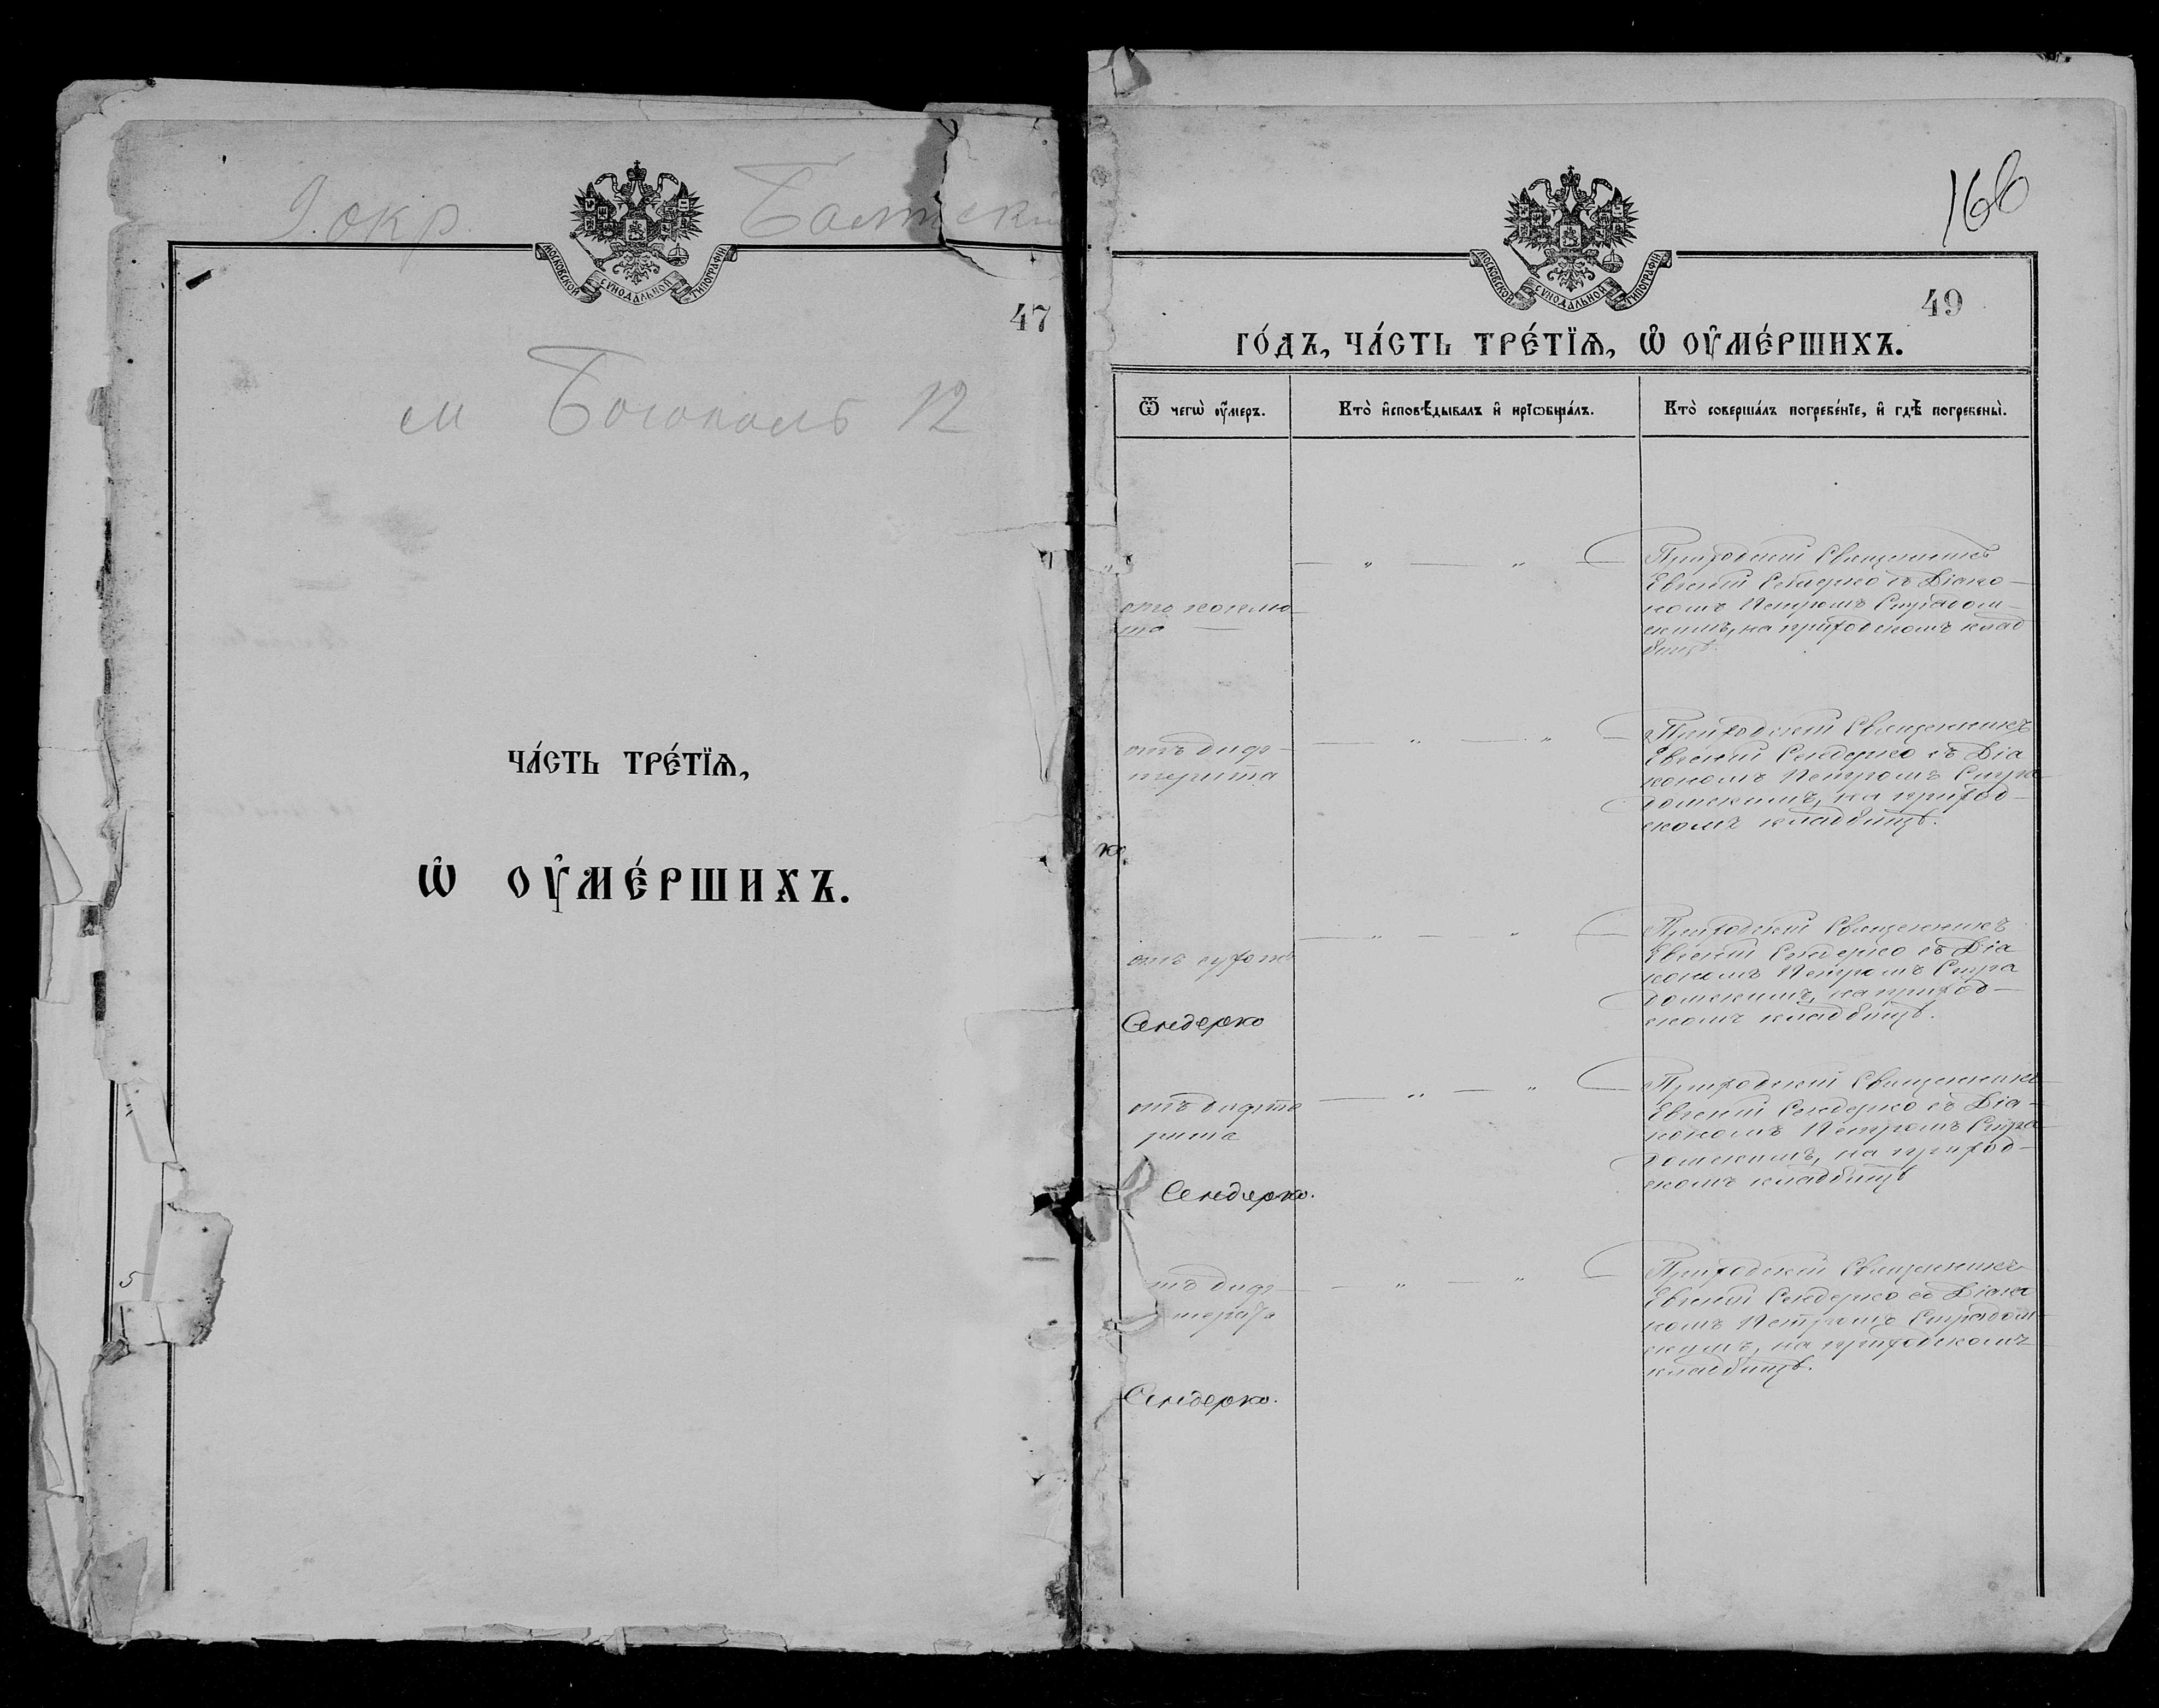 9. окр. Балтскій
МОСКОВСКОЙ СѴНОДАЛЬНОЙ ТИПОГРАФІИ
47
м Богополь 12
ЧА́СТЬ ТРЕ́ТЇѦ,
Ѡ҆ ОУ҆МЕ́РШИХЪ.
5
166
МОСКОВСКОЙ СѴНОДАЛЬНОЙ ТИПОГРАФІИ
49
ГО́ДЪ, ЧА́СТЬ ТРЕ́ТЇѦ, Ѡ҆ ОУ҆МЕ́РШИХЪ.
Ѿ чегѡ̀ оу҆́меръ.
Кто̀ и҆сповѣ́дывалъ и҆ прїѡбща́лъ.
Кто̀ соверша́лъ погребе́нїе, и҆ гдѣ̀ погребены̀.
Приходскій Священникъ
Евгеній Сендерко съ Діако-
номъ Петромъ Страдом-
скимъ, на приходскомъ клад
бищѣ.
отъ дифт-
терита
Приходскій Священникъ
Евгеній Сендерко съ Діа
кономъ Петромъ Стра-
домскимъ, на приход-
скомъ кладбищѣ.
ко.
отъ сухотъ
Приходскій Священникъ
Евгеній Сендерко съ Діа
кономъ Петромъ Стра
домскимъ, на приход-
скомъ кладбищѣ.
Сендерко
отъ дифте
рита
Приходскій Священникъ
Евгеній Сендерко съ Діа-
кономъ Петромъ Стра-
домскимъ, на приход-
скомъ кладбищѣ
Сендерко.
тъ диф-
терита
Приходскій Священникъ
Евгеній Сендерко съ Діако
номъ Петромъ Страдом-
скимъ, на приходскомъ
кладбищѣ.
Сендерко.